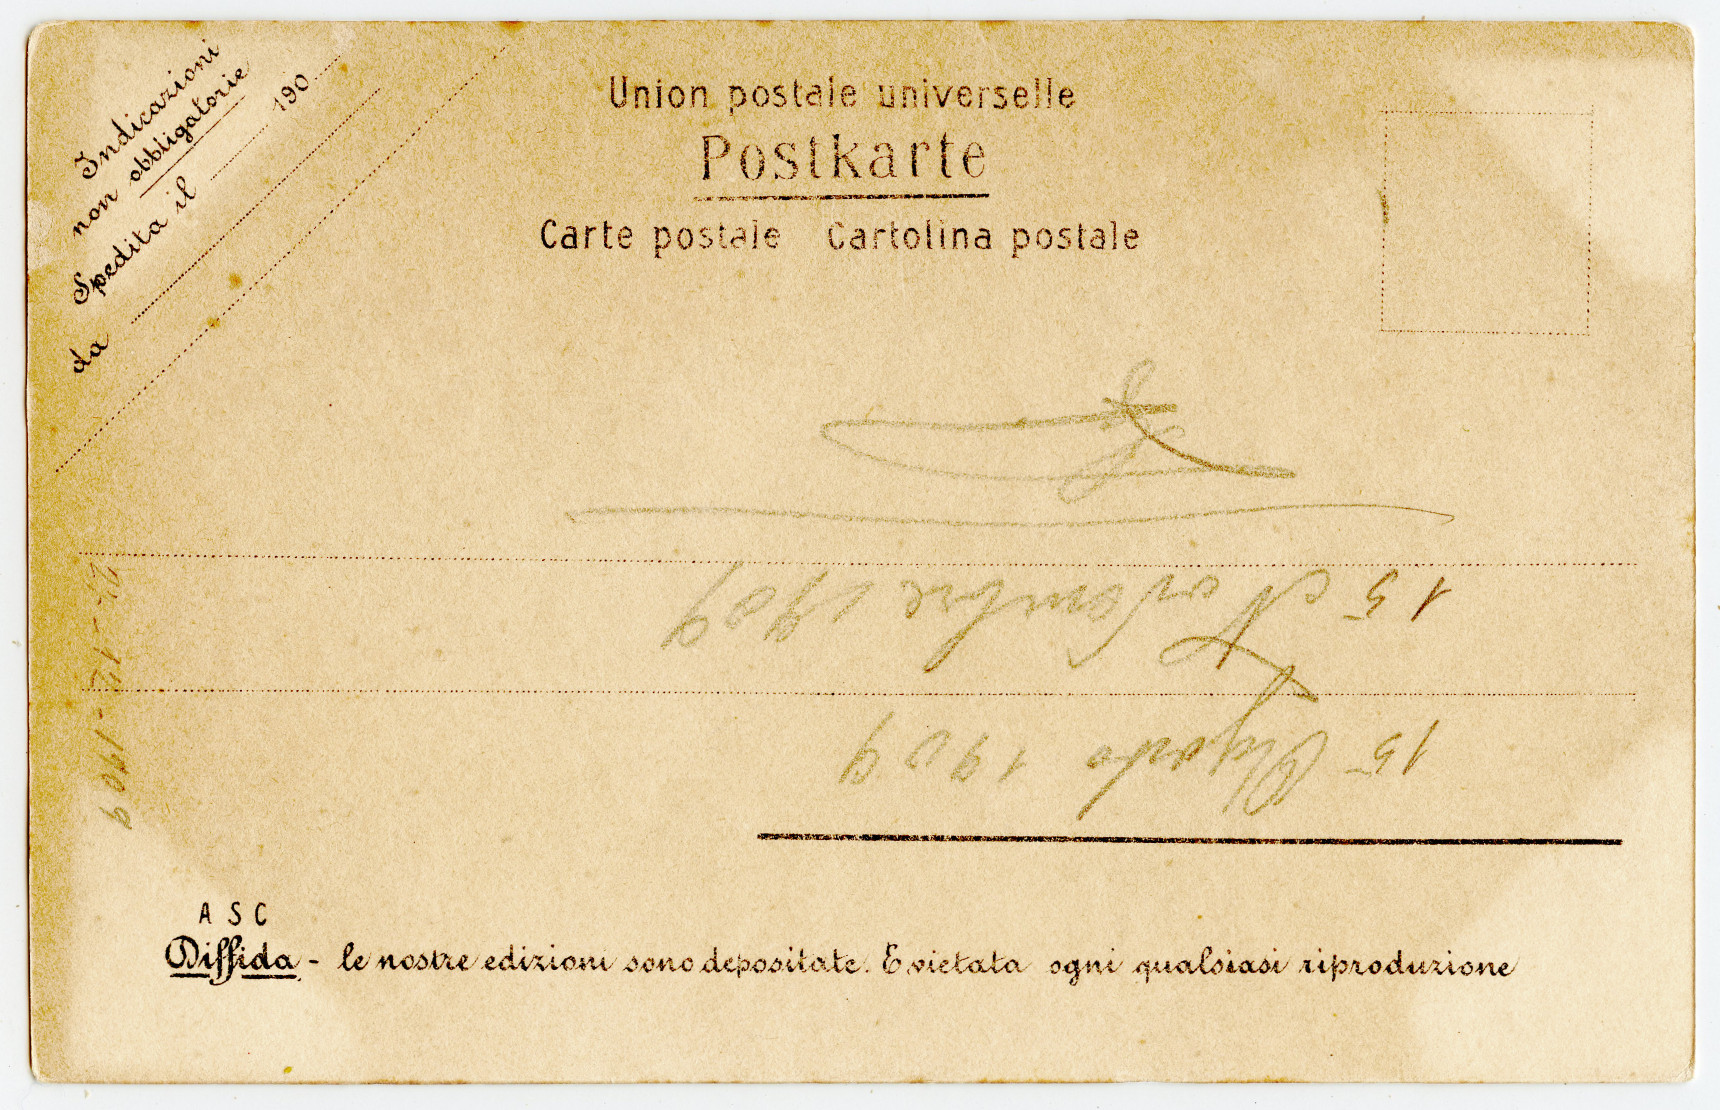 Indicazioni
non obbligatorie
Spedita il 190
da
Union postale universelle
Postkarte
Carte postale Cartolina postale
15 Agosto 1909
15 Novembre 1909
2 - 12 - 1909
A S C
Diffida - le nostre edizioni sono depositate. E vietata ogni qualsiasi riproduzione